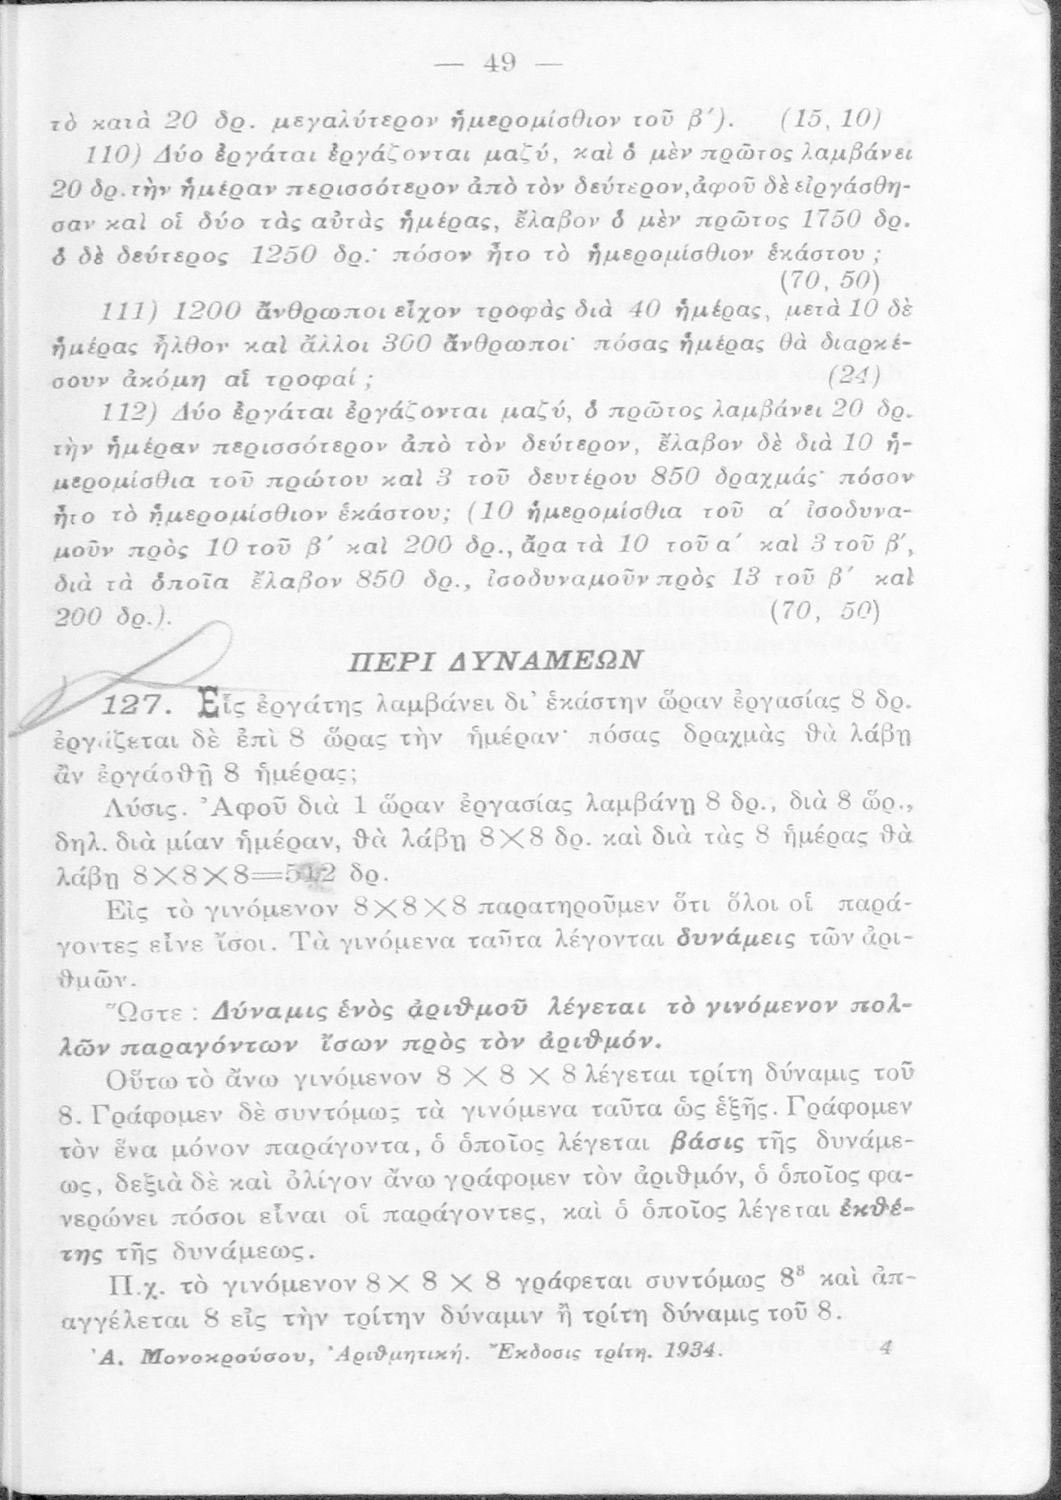 — 49 —
τὸ κατὰ 20 δρ. μεγαλύτερον ἡμερομίσθιον τοῦ β΄). (15, 10)
110) Δύο ἐργάται ἐργάζονται μαζύ, καὶ ὁ μὲν πρῶτος λαμβάνει
20 δρ. τὴν ἡμέραν περισσότερον ἀπὸ τὸν δεύτερον, ἀφοῦ δὲ εἰργάσθη-
σαν καὶ οἱ δύο τὰς αὐτὰς ἡμέρας, ἔλαβον ὁ μὲν πρῶτος 1750 δρ.
ὁ δὲ δεύτερος 1250 δρ.· πόσον ἦτο τὸ ἡμερομίσθιον ἑκάστου ;
(70, 50)
111) 1200 ἄνθρωποι εἶχον τροφὰς διὰ 40 ἡμέρας, μετὰ 10 δὲ
ἡμέρας ἦλθον καὶ ἄλλοι 300 ἄνθρωποι· πόσας ἡμέρας θὰ διαρκέ-
σουν ἀκόμη αἱ τροφαί ; (24)
112) Δύο ἐργάται ἐργάζονται μαζύ, ὁ πρῶτος λαμβάνει 20 δρ.
τὴν ἡμέραν περισσότερον ἀπὸ τὸν δεύτερον, ἔλαβον δὲ διὰ 10 ἡ-
μερομίσθια τοῦ πρώτου καὶ 3 τοῦ δευτέρου 850 δραχμάς· πόσον
ἦτο τὸ ἡμερομίσθιον ἑκάστου; (10 ἡμερομίσθια τοῦ α΄ ἰσοδυνα-
μοῦν πρὸς 10 τοῦ β΄ καὶ 200 δρ., ἄρα τὰ 10 τοῦ α΄ καὶ 3 τοῦ β΄,
διὰ τὰ ὁποῖα ἔλαβον 850 δρ., ἰσοδυναμοῦν πρὸς 13 τοῦ β΄ καὶ
200 δρ.). (70, 50)
ΠΕΡΙ ΔΥΝΑΜΕΩΝ
127. Εἷς ἐργάτης λαμβάνει δι' ἑκάστην ὥραν ἐργασίας 8 δρ.
ἐργάζεται δὲ ἐπὶ 8 ὥρας τὴν ἡμέραν· πόσας δραχμὰς θὰ λάβῃ
ἂν ἐργάσθῇ 8 ἡμέρας;
Λύσις. Ἀφοῦ διὰ 1 ὥραν ἐργασίας λαμβάνῃ 8 δρ., διὰ 8 ὥρ.,
δηλ. διὰ μίαν ἡμέραν, θὰ λάβῃ 8×8 δρ. καὶ διὰ τὰς 8 ἡμέρας θὰ
λάβῃ 8×8×8=512 δρ.
Εἰς τὸ γινόμενον 8×8×8 παρατηροῦμεν ὅτι ὅλοι οἱ παρά-
γοντες εἶνε ἴσοι. Τὰ γινόμενα ταῦτα λέγονται δυνάμεις τῶν ἀρι-
θμῶν.
Ὥστε : Δύναμις ἑνὸς ἀριθμοῦ λέγεται τὸ γινόμενον πολ-
λῶν παραγόντων ἴσων πρὸς τὸν ἀριθμόν.
Οὕτω τὸ ἄνω γινόμενον 8 × 8 × 8 λέγεται τρίτη δύναμις τοῦ
8. Γράφομεν δὲ συντόμως τὰ γινόμενα ταῦτα ὡς ἑξῆς. Γράφομεν
τὸν ἕνα μόνον παράγοντα, ὁ ὁποῖος λέγεται βάσις τῆς δυνάμε-
ως, δεξιὰ δὲ καὶ ὀλίγον ἄνω γράφομεν τὸν ἀριθμόν, ὁ ὁποῖος φα-
νερώνει πόσοι εἶναι οἱ παράγοντες, καὶ ὁ ὁποῖος λέγεται ἐκθέ-
της τῆς δυνάμεως.
Π.χ. τὸ γινόμενον 8 × 8 × 8 γράφεται συντόμως 8³ καὶ ἀπ-
αγγέλεται 8 εἰς τὴν τρίτην δύναμιν ἢ τρίτη δύναμις τοῦ 8.
Ἀ. Μονοκρούσου, Ἀριθμητική. Ἔκδοσις τρίτη. 1934. 4